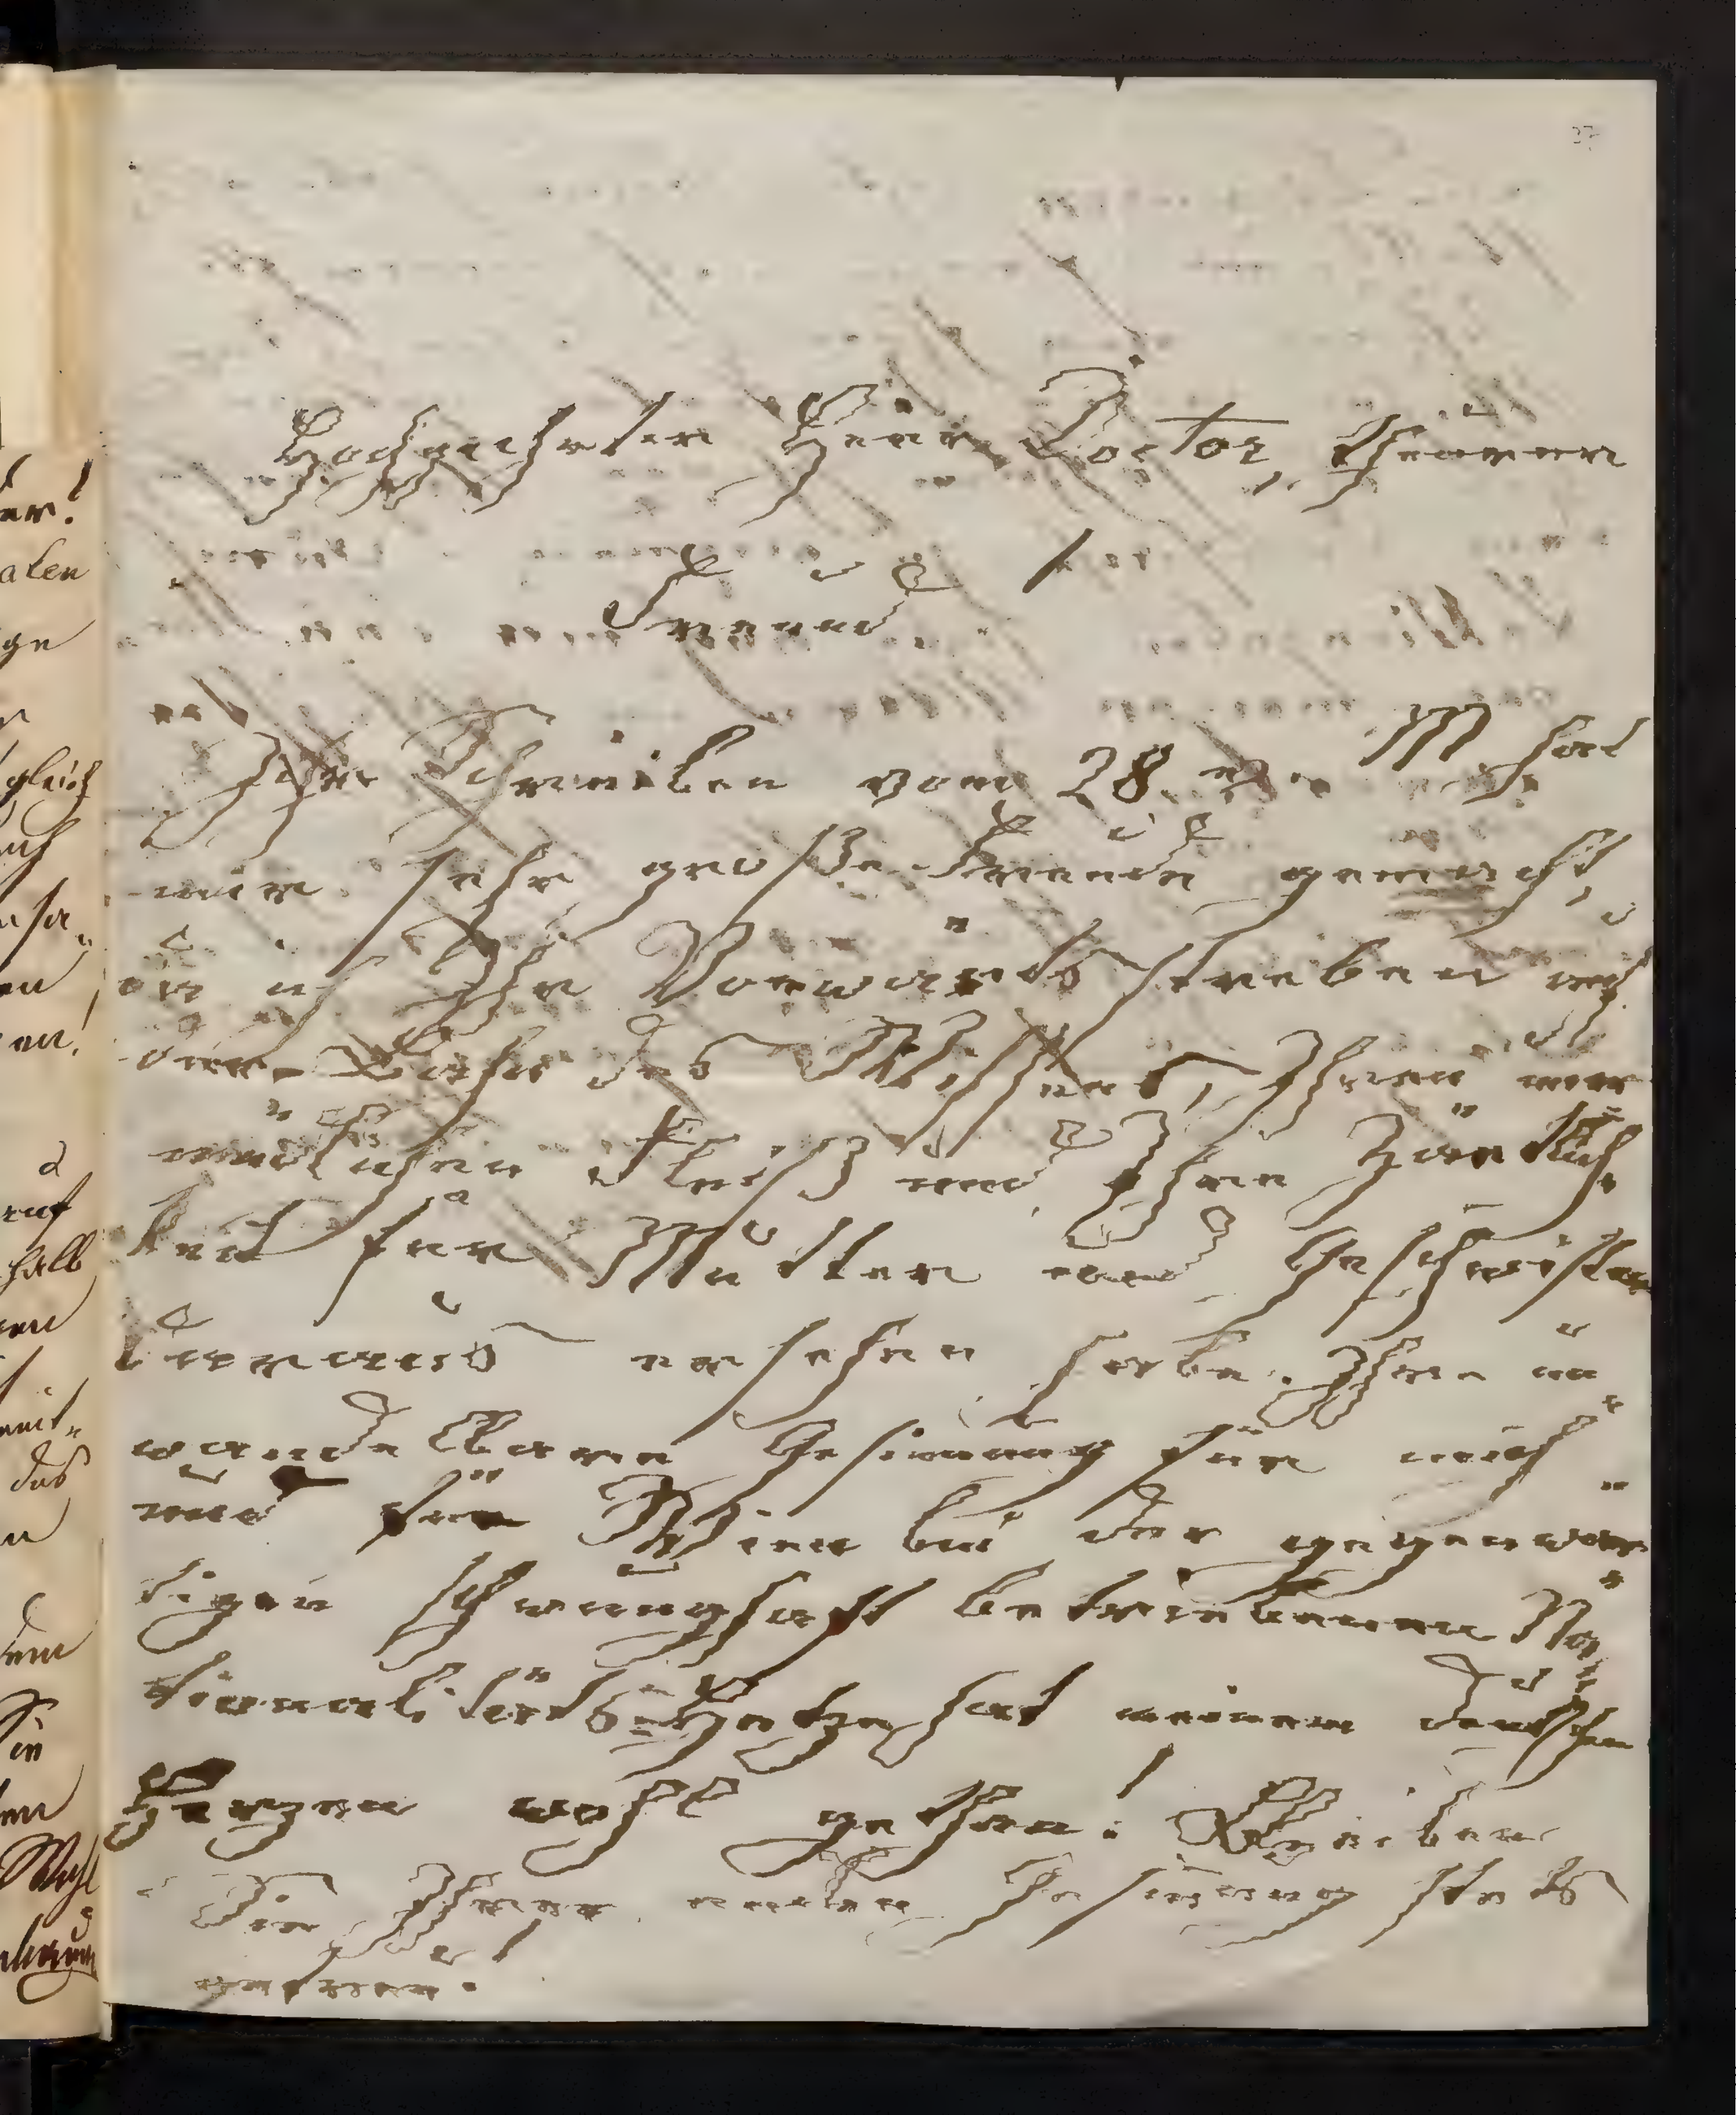 37
Hochgeehrter Herr Doctor, theurer
Freund!
Ihr Schreiben vom 28 v. M hat
mir sehr große Freude gemacht,
da ich Ihr Vorwärtsstreben auf
der Bahn des Wissens, Ihren uner
müdlichen Fleiß und Ihre Zärtlich
keit für Mutter und Geschwister
daraus ersehen habe. Ihre un
wandelbare Gesinnung für mich
und für Wien bei der gegenwär
tigen schwunghaft betriebenen Na
tionalitäts-Hetze hat meinem deutschen
Herzen wohl gethan! Bleiben
Sie Ihrer edlen Gesinnung stets